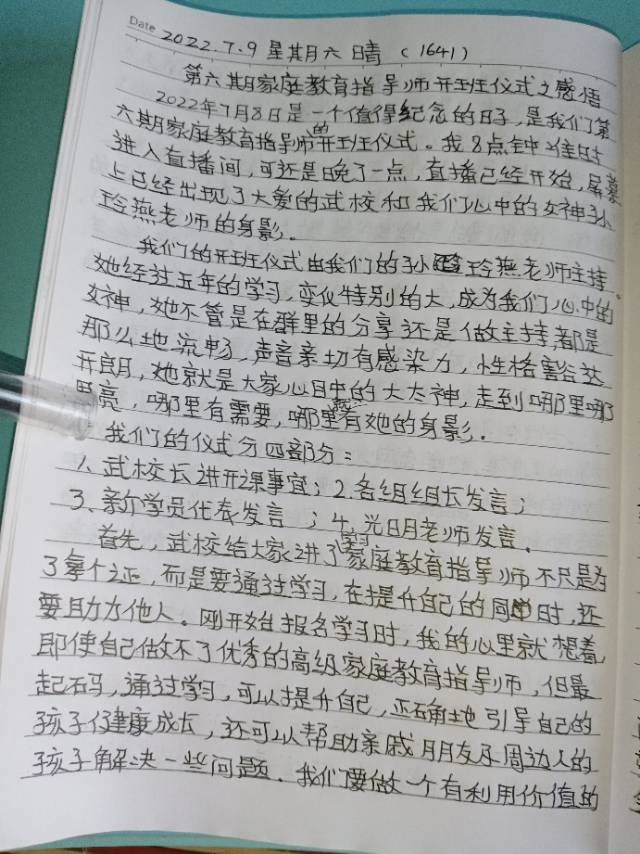 Date 2022.7.9 星期六 晴 (1641)
第六期家庭教育指导师开班仪式之感悟
2022年7月8日是一个值得纪念的日子,是我们第
六期家庭教育指导师的开班仪式。我8点钟准时
进入直播间,可还是晚了一点,直播已经开始,屏幕
上已经出现了大爱的武校和我们心中的女神孙
玲燕老师的身影。
我们的开班仪式由我们的孙玲燕老师主持。
她经过五年的学习,变化特别的大,成为我们心中的
女神,她不管是在群里的分享还是做主持都是
那么地流畅,声音亲切有感染力,性格豁达
开朗,她就是大家心目中的大太神,走到哪里哪
里亮,哪里有需要,哪里就有她的身影.
我们的仪式分四部分:
1、武校长讲开课事宜;2.各组组长发言;
3、新学员代表发言;4,光明老师发言.
首先,武校给大家讲了学习家庭教育指导师不只是为
了拿个证,而是要通过学习,在提升自己的同时,还
要助力他人。刚开始报名学习时,我的心里就想着,
即使自己做不了优秀的高级家庭教育指导师,但最
起码,通过学习,可以提升自己,正确地引导自己的
孩子健康成长,还可以帮助亲戚朋友及周边人的
孩子解决一些问题.我们要做一个有利用价值的